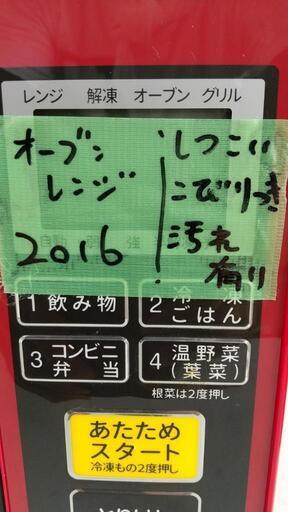 レンジ 解凍 オーブン グリル
オーブン
レンジ
2016
しつこい
こびりつき
汚れ
有り
強
1 飲み物
2 冷凍
ごはん
3 コンビニ
弁当
4 温野菜
(葉菜)
根菜は2度押し
あたため
スタート
冷凍もの2度押し